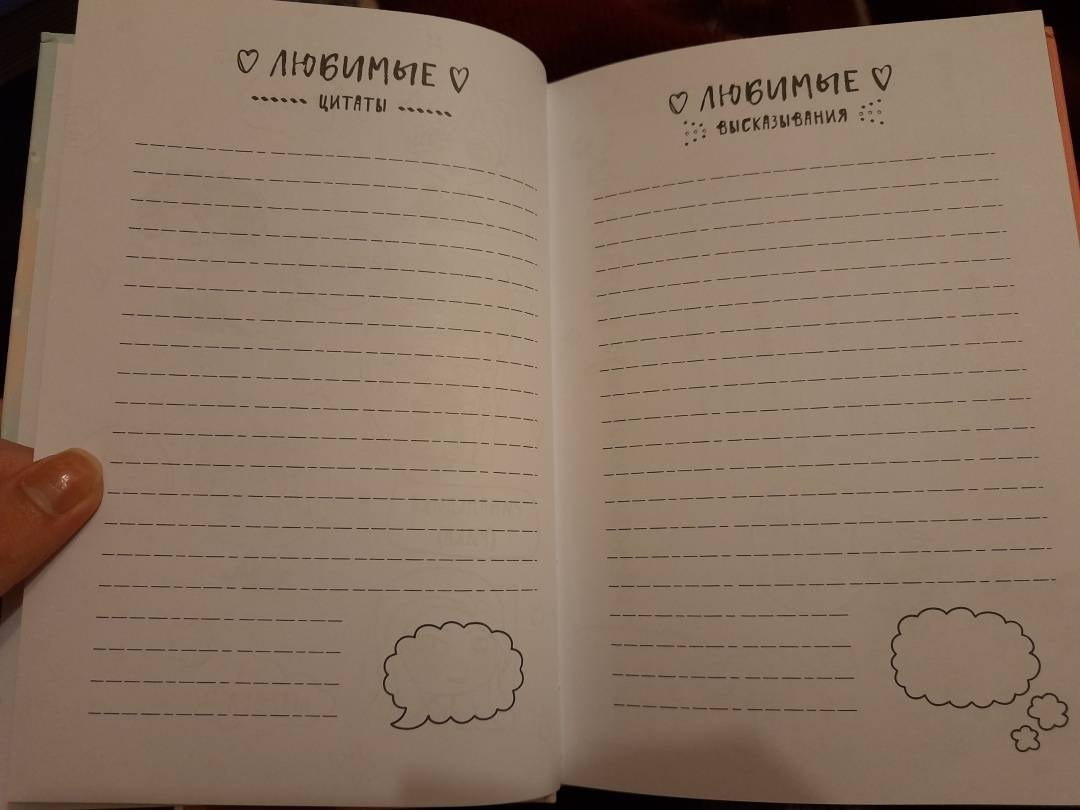 ЛЮБИМЫЕ
ЦИТАТЫ
ЛЮБИМЫЕ
ВЫСКАЗЫВАНИЯ